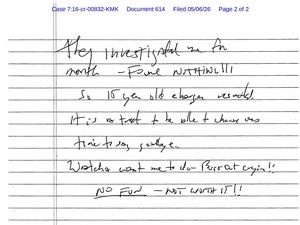 Case 7:16-cr-00832-KMK Document 614 Filed 05/06/26 Page 2 of 2
They investigated me for
month - Found NOTHING!!!
So 15 year old charges
It is to be able to
time to say goodbye.
want me to do !!
NO FUN - NOT WORTH IT!!